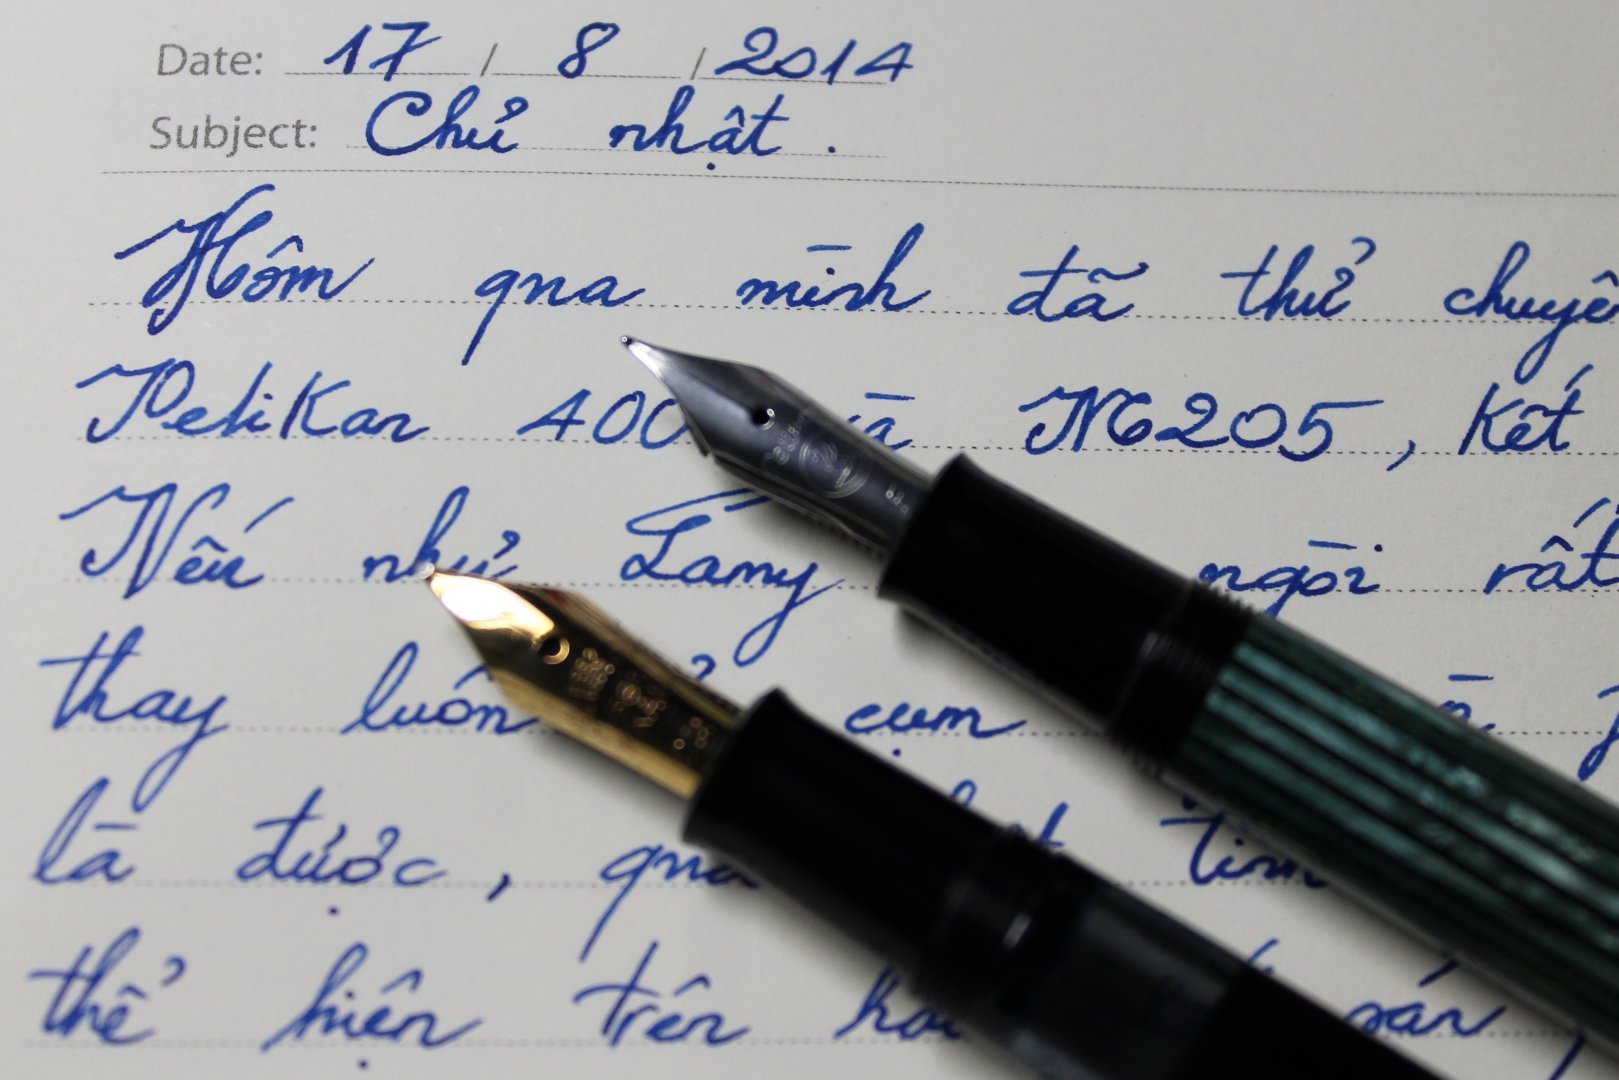 Date: 17 / 8 / 2014
Subject: Chủ nhật.
Hôm qua mình đã thử
Pelikan 400 và M205, kết
Nếu như Lamy ngòi rất
thay luôn cụm
là được, qua tính
thể hiện trên